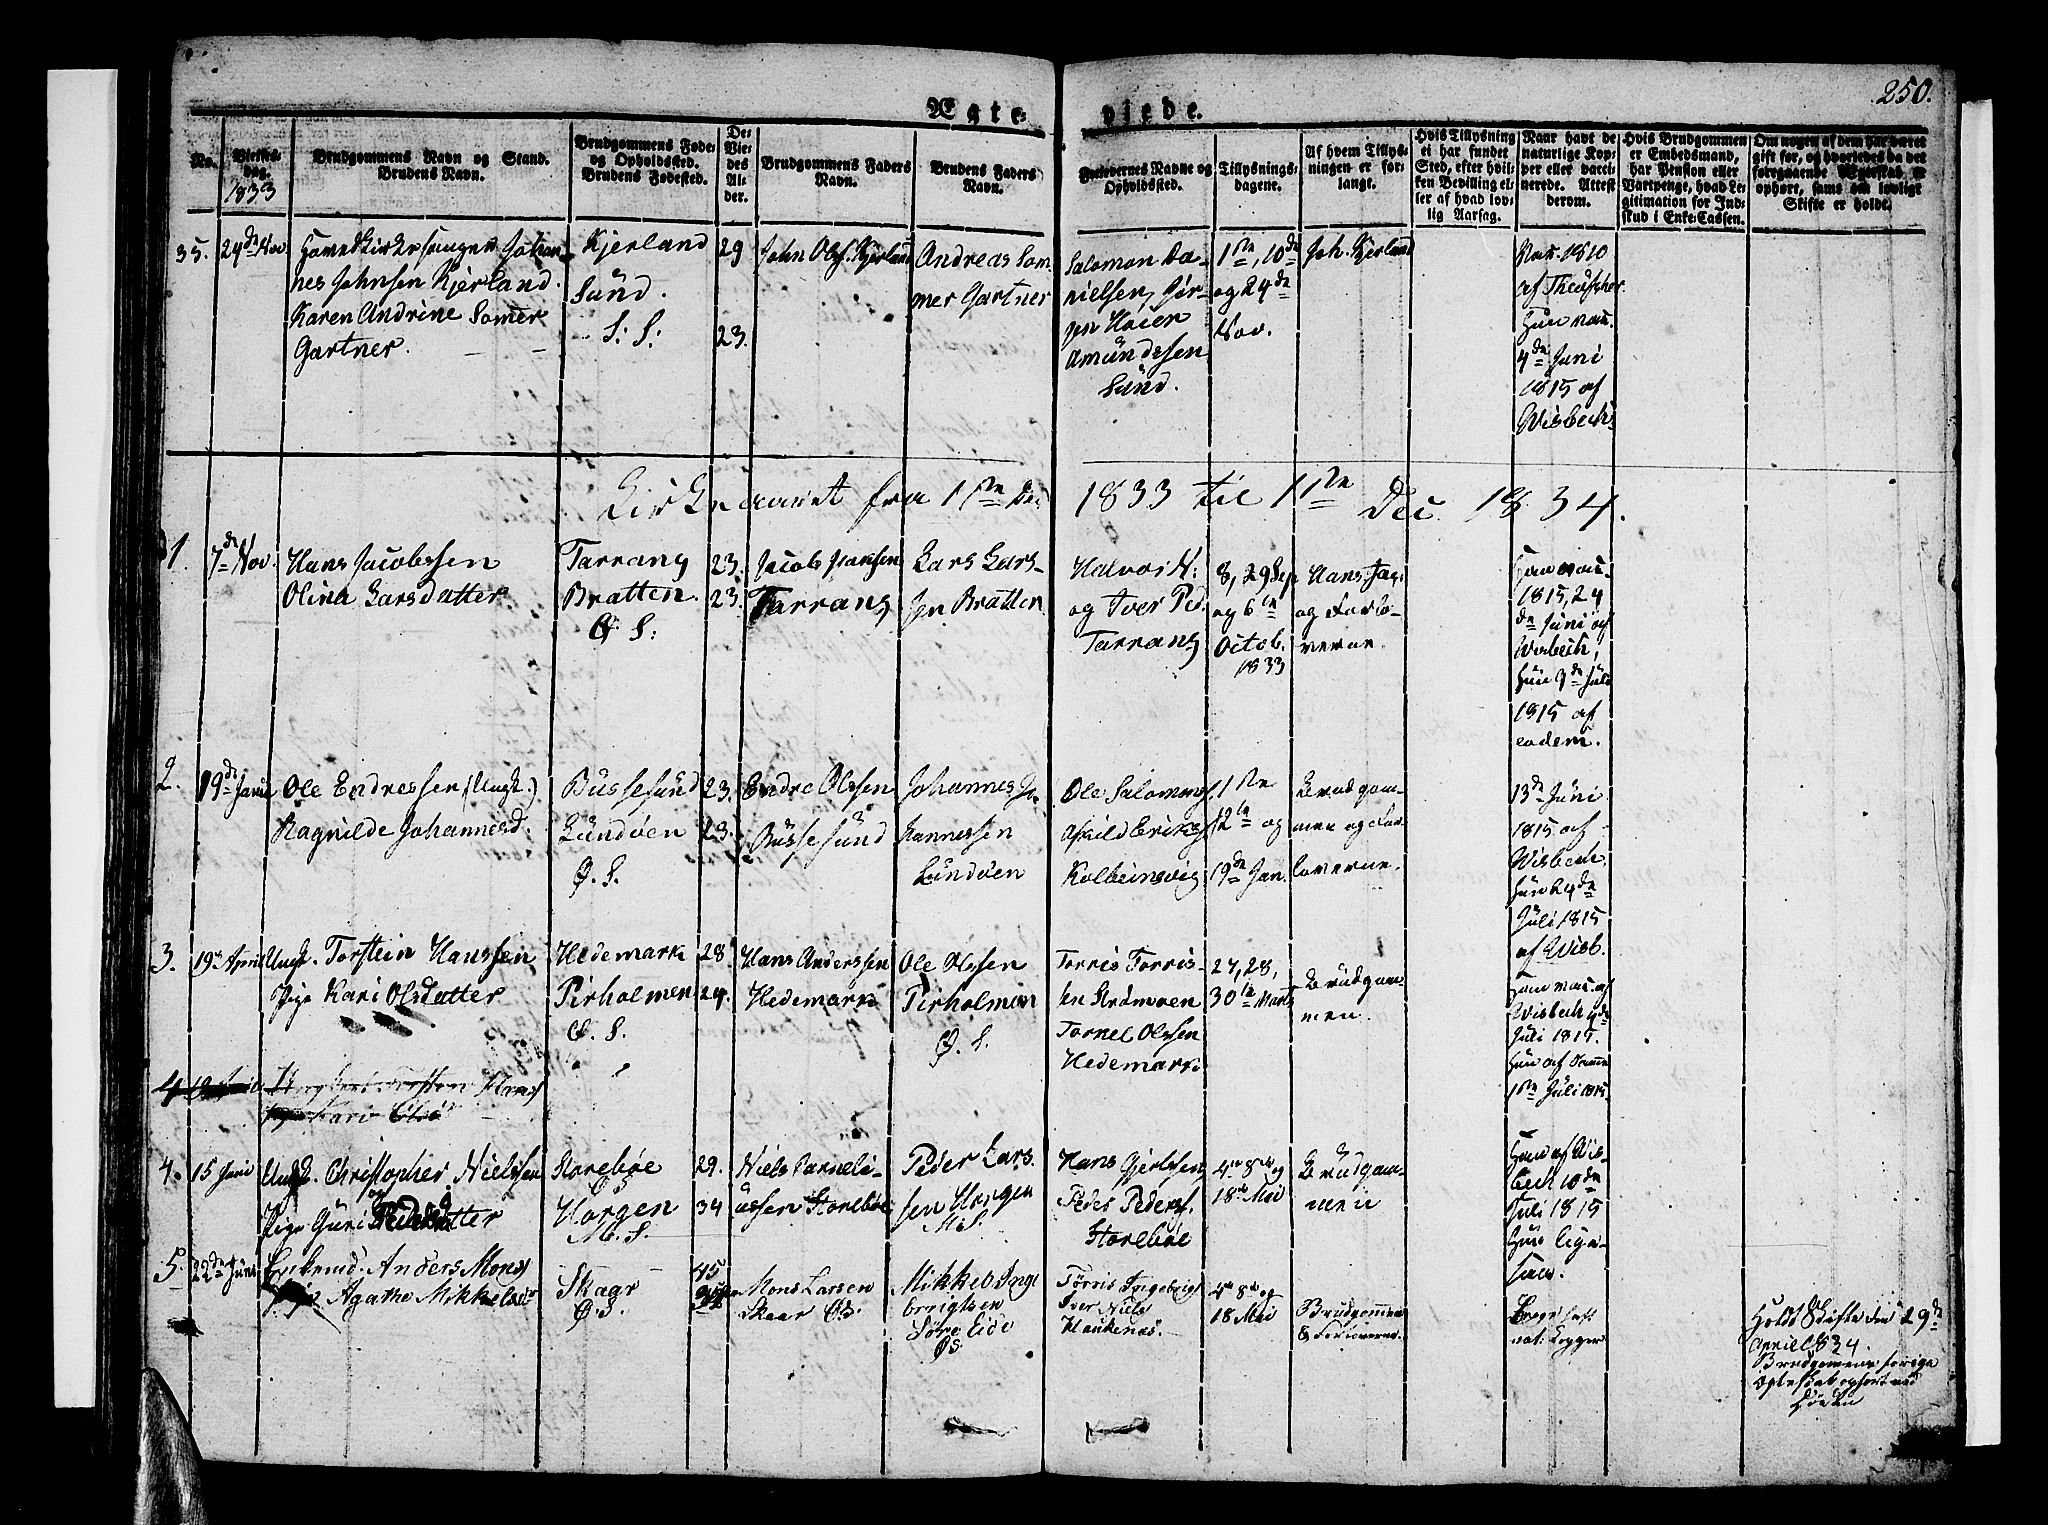 250.
Ægte-
viede.
No.
Vielses-
dag.
1833
Brudgommens Navn og Stand.
Brudens Navn.
Brudgommens Føde-
og Opholdssted.
Brudens Fødested.
De
Vie-
des
Al-
der.
Brudgommens Faders
Navn.
Brudens Faders
Navn.
Forlovernes Navne og
Opholdssted.
Tillysnings-
dagene.
Af hvem Tillys-
ningen er for-
langt.
Hvis Tillysning
ei har fundet
Sted, efter hvil-
ken Bevilling el-
ler af hvad lov-
lig Aarsag.
Naar havt de
naturlige Kop-
per eller vacci-
nerede. Attest
derom.
Hvis Brudgommen
er Embedsmand,
har Pension eller
Vartpenge, hvad Le-
gitimation for Ind-
skud i Enke-Cassen.
Om nogen af dem har været
gift før, og hvorledes da det
foregaaende Ægteskab er
ophørt, samt om lovligt
Skifte er holdt.
35.
24de Nov
Hovedkirkesanger Johan-
nes Johnsen Kjerland.
Karen Andrine Somer
Gartner.
Kjerland
Sund.
S: S:
29
23.
John Ols. Kjerland
Andreas Som-
mer Gartner
Salomon Da-
nielsen, Jør-
gen Høier
Amundsen
Sund.
1ste, 10de
og 24de
Nov.
Joh. Kjerland
Nat. 1810
af
Hun vac.
4de Juni
1815 af
Wisbech.
Kirkeaaret fra 1ste Dec
1833 til 1ste Dec. 1834.
1.
7de Nov.
Hans Jacobssen
Olina Larsdatter
Tarrang
Bratten.
Ø. S:
23.
23.
Jacob Hansen
Tarrang
Lars Lars-
sen Bratten
Halvor H.
og Iver Ped.
Tarrang
8, 29 Sep
og 6te
Octob.
1833
Hans Jac.
og Forlo-
verne.
Han vac.
1815, 24
de Juni af
Wisbech,
Hun 3de Juli
1815 af
eodem.
2.
19de Janu
Ole Endressen (Ungk.)
Ragnilde Johannesd.
Bussesund
Lundøen
Ø. S.
23.
23.
Endre Olssen
Bussesund
Johannes Jo-
hannessen
Lundøen
Ole Salomons.
Eriks
Kolbeinsvig
1ste
12te og
19de Jan.
Brudgom-
men og For-
loverne.
13de Juni
1815 af
Wisbech.
Hun 24de
Juli 1815
af Wisb.
3.
19de April
Ungk. Torstein Hanssen
Pige Kari Olsdatter
Hedemark
Pirholmen
Ø. S.
28
24.
Hans Anderssen
Hedemark
Ole Olssen
Pirholmen
Ø. S.
Torris Torris-
sen Strømøen
Tornel Olssen
Hedemark
27, 28,
30te Marts
Brudgom-
men.
Han vac. af
Wisbech 4de
Juli 1815.
Hun af Samme
1ste Juli 1815
4
Kari
4.
15 Juni
Ungk. Christopher Nielssen
og
Pige Guri Pedersdatter
Storebøe
Ø S
Horgen
M. S.
29.
34
Niels Corneli-
ussen Storebøe
Peder Lars-
sen Horgen
M. S.
Hans Gjertssen,
Peder Peders.
Storebøe
4de 8de og
18de Mai
Brudgom-
men
Han af Wis-
bech 10de
Juli 1815
Hun lige-
saa.
5.
22de Juni
Enkemd. Anders Mons
Pige Agathe Mikkelsd
Skaar
Ø. S.
45
Mons Larsen
Skaar ØS.
Mikkel Inge
brigtsen
Søre Eide
ØS.
Tørris Ingebrigts
Iver Niels
Haukenæs.
4de 8de og
18 Mai
Brudgommen
& Forloverne.
Begge haft
nat. Kopper
Holdt Skifte den 29de
April 1834.
Brudgommens forige
Ægteskab ophørt ved
Døden